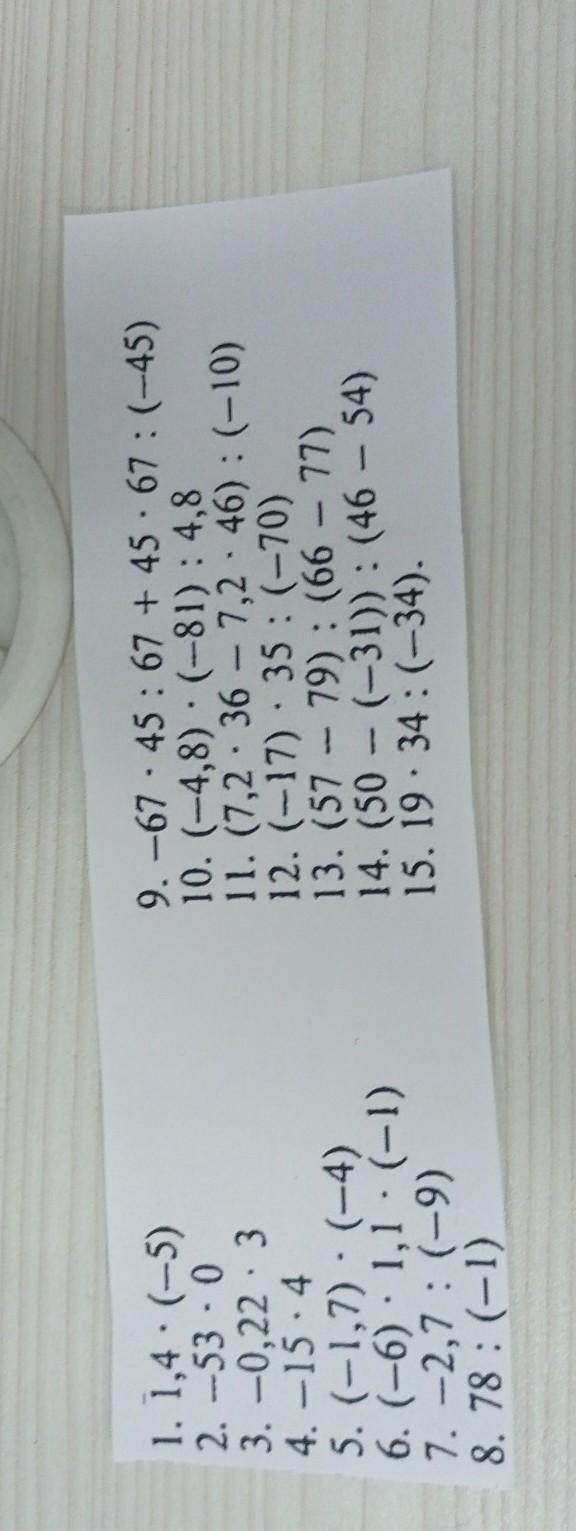 1. 1,4 · (−5)
2. −53 · 0
3. −0,22 · 3
4. −15 · 4
5. (−1,7) · (−4)
6. (−6) · 1,1 · (−1)
7. −2,7 : (−9)
8. 78 : (−1)
9. −67 · 45 : 67 + 45 · 67 : (−45)
10. (−4,8) · (−81) : 4,8
11. (7,2 · 36 − 7,2 · 46) : (−10)
12. (−17) · 35 : (−70)
13. (57 − 79) : (66 − 77)
14. (50 − (−31)) : (46 − 54)
15. 19 · 34 : (−34).